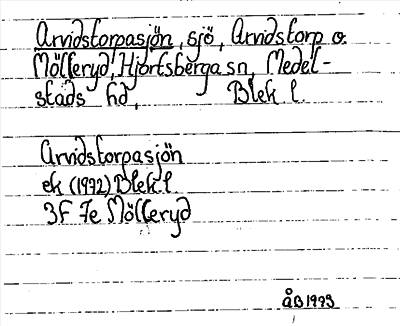 Arvidstorpasjön, sjö, Arvidstorp o.
Mölleryd, Hjortsberga sn, Medel-
stads hd, Blek l.
Arvidstorpasjön
ek (1972) Blek l.
3F 7e Mölleryd
ÅB 1973